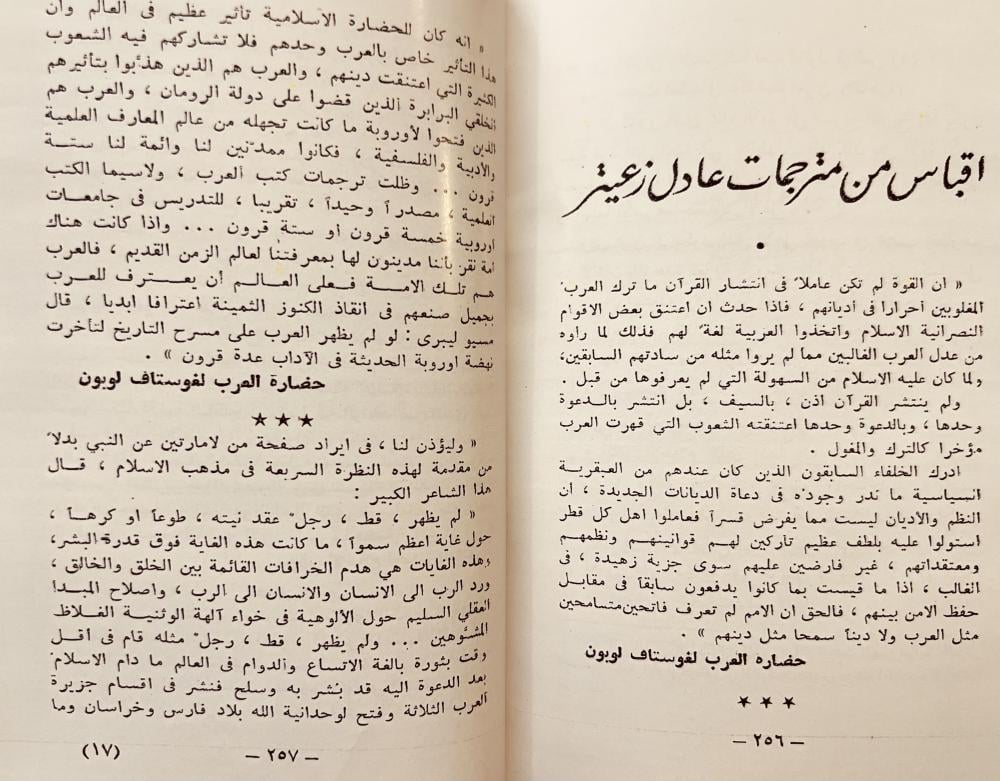 اقباس من مترجمات عادل زعيتر
•
« ان القوة لم تكن عاملاً في انتشار القرآن ما ترك العرب
المغلوبين أحرارا في أديانهم ، فاذا حدث ان اعتنق بعض الاقوام
النصرانية الاسلام واتخذوا العربية لغةً لهم فذلك لما راوه
من عدل العرب الغالبين مما لم يروا مثله من سادتهم السابقين،
ولما كان عليه الاسلام من السهولة التي لم يعرفوها من قبل .
ولم ينتشر القرآن اذن ، بالسيف ، بل انتشر بالدعوة
وحدها ، وبالدعوة وحدها اعتنقته الشعوب التي قهرت العرب
مؤخرا كالترك والمغول .
ادرك الخلفاء السابقون الذين كان عندهم من العبقرية
السياسية ما ندر وجوده في دعاة الديانات الجديدة ، ان
النظم والأديان ليست مما يفرض قسراً فعاملوا اهل كل قطر
استولوا عليه بلطف عظيم تاركين لهم قوانينهم ونظمهم
ومعتقداتهم ، غير فارضين عليهم سوى جزية زهيدة ، في
الغالب ، اذا ما قيست بما كانوا يدفعون سابقاً في مقابل
حفظ الامن بينهم ، فالحق ان الامم لم تعرف فاتحين متسامحين
مثل العرب ولا ديناً سمحا مثل دينهم » .
حضاره العرب لغوستاف لوبون
★ ★ ★
— ٢٥٦ —
« انه كان للحضارة الاسلامية تأثير عظيم في العالم وان
هذا التأثير خاص بالعرب وحدهم فلا تشاركهم فيه الشعوب
الكثيرة التي اعتنقت دينهم ، والعرب هم الذين هذّبوا بتأثيرهم
الخلقي البرابرة الذين قضوا على دولة الرومان ، والعرب هم
الذين فتحوا لأوروبة ما كانت تجهله من عالم المعارف العلمية
والأدبية والفلسفية ، فكانوا ممدّنين لنا وائمة لنا ستة
قرون ... وظلت ترجمات كتب العرب ، ولاسيما الكتب
العلمية ، مصدراً وحيداً ، تقريبا ، للتدريس في جامعات
اوروبة خمسة قرون او ستة قرون ... واذا كانت هناك
امة نقر بأننا مدينون لها بمعرفتنا لعالم الزمن القديم ، فالعرب
هم تلك الامة فعلى العالم أن يعترف للعرب
بجميل صنعهم في انقاذ الكنوز الثمينة اعترافا ابديا ، قال
مسيو ليبرى : لو لم يظهر العرب على مسرح التاريخ لتأخرت
نهضة اوروبة الحديثة في الآداب عدة قرون » .
حضارة العرب لغوستاف لوبون
★ ★ ★
« وليؤذن لنا ، في ايراد صفحة من لامارتين عن النبي بدلاً
من مقدمة لهذه النظرة السريعة في مذهب الاسلام ، قال
هذا الشاعر الكبير :
« لم يظهر ، قط ، رجلٌ عقد نيته ، طوعاً او كرهاً ،
حول غاية اعظم سمواً ، ما كانت هذه الغاية فوق قدرة البشر،
وهذه الغايات هي هدم الخرافات القائمة بين الخلق والخالق ،
ورد الرب الى الانسان والانسان الى الرب ، واصلاح المبدا
العقلي السليم حول الألوهية في خواء آلهة الوثنية الغلاظ
المشوهين ... ولم يظهر ، قط ، رجلٌ مثله قام في اقل
وقت بثورة بالغة الاتساع والدوام في العالم ما دام الاسلام
بعد الدعوة اليه قد بُشر به وسلح فنشر في اقسام جزيرة
العرب الثلاثة وفتح لوحدانية الله بلاد فارس وخراسان وما
— ٢٥٧ —
(١٧)